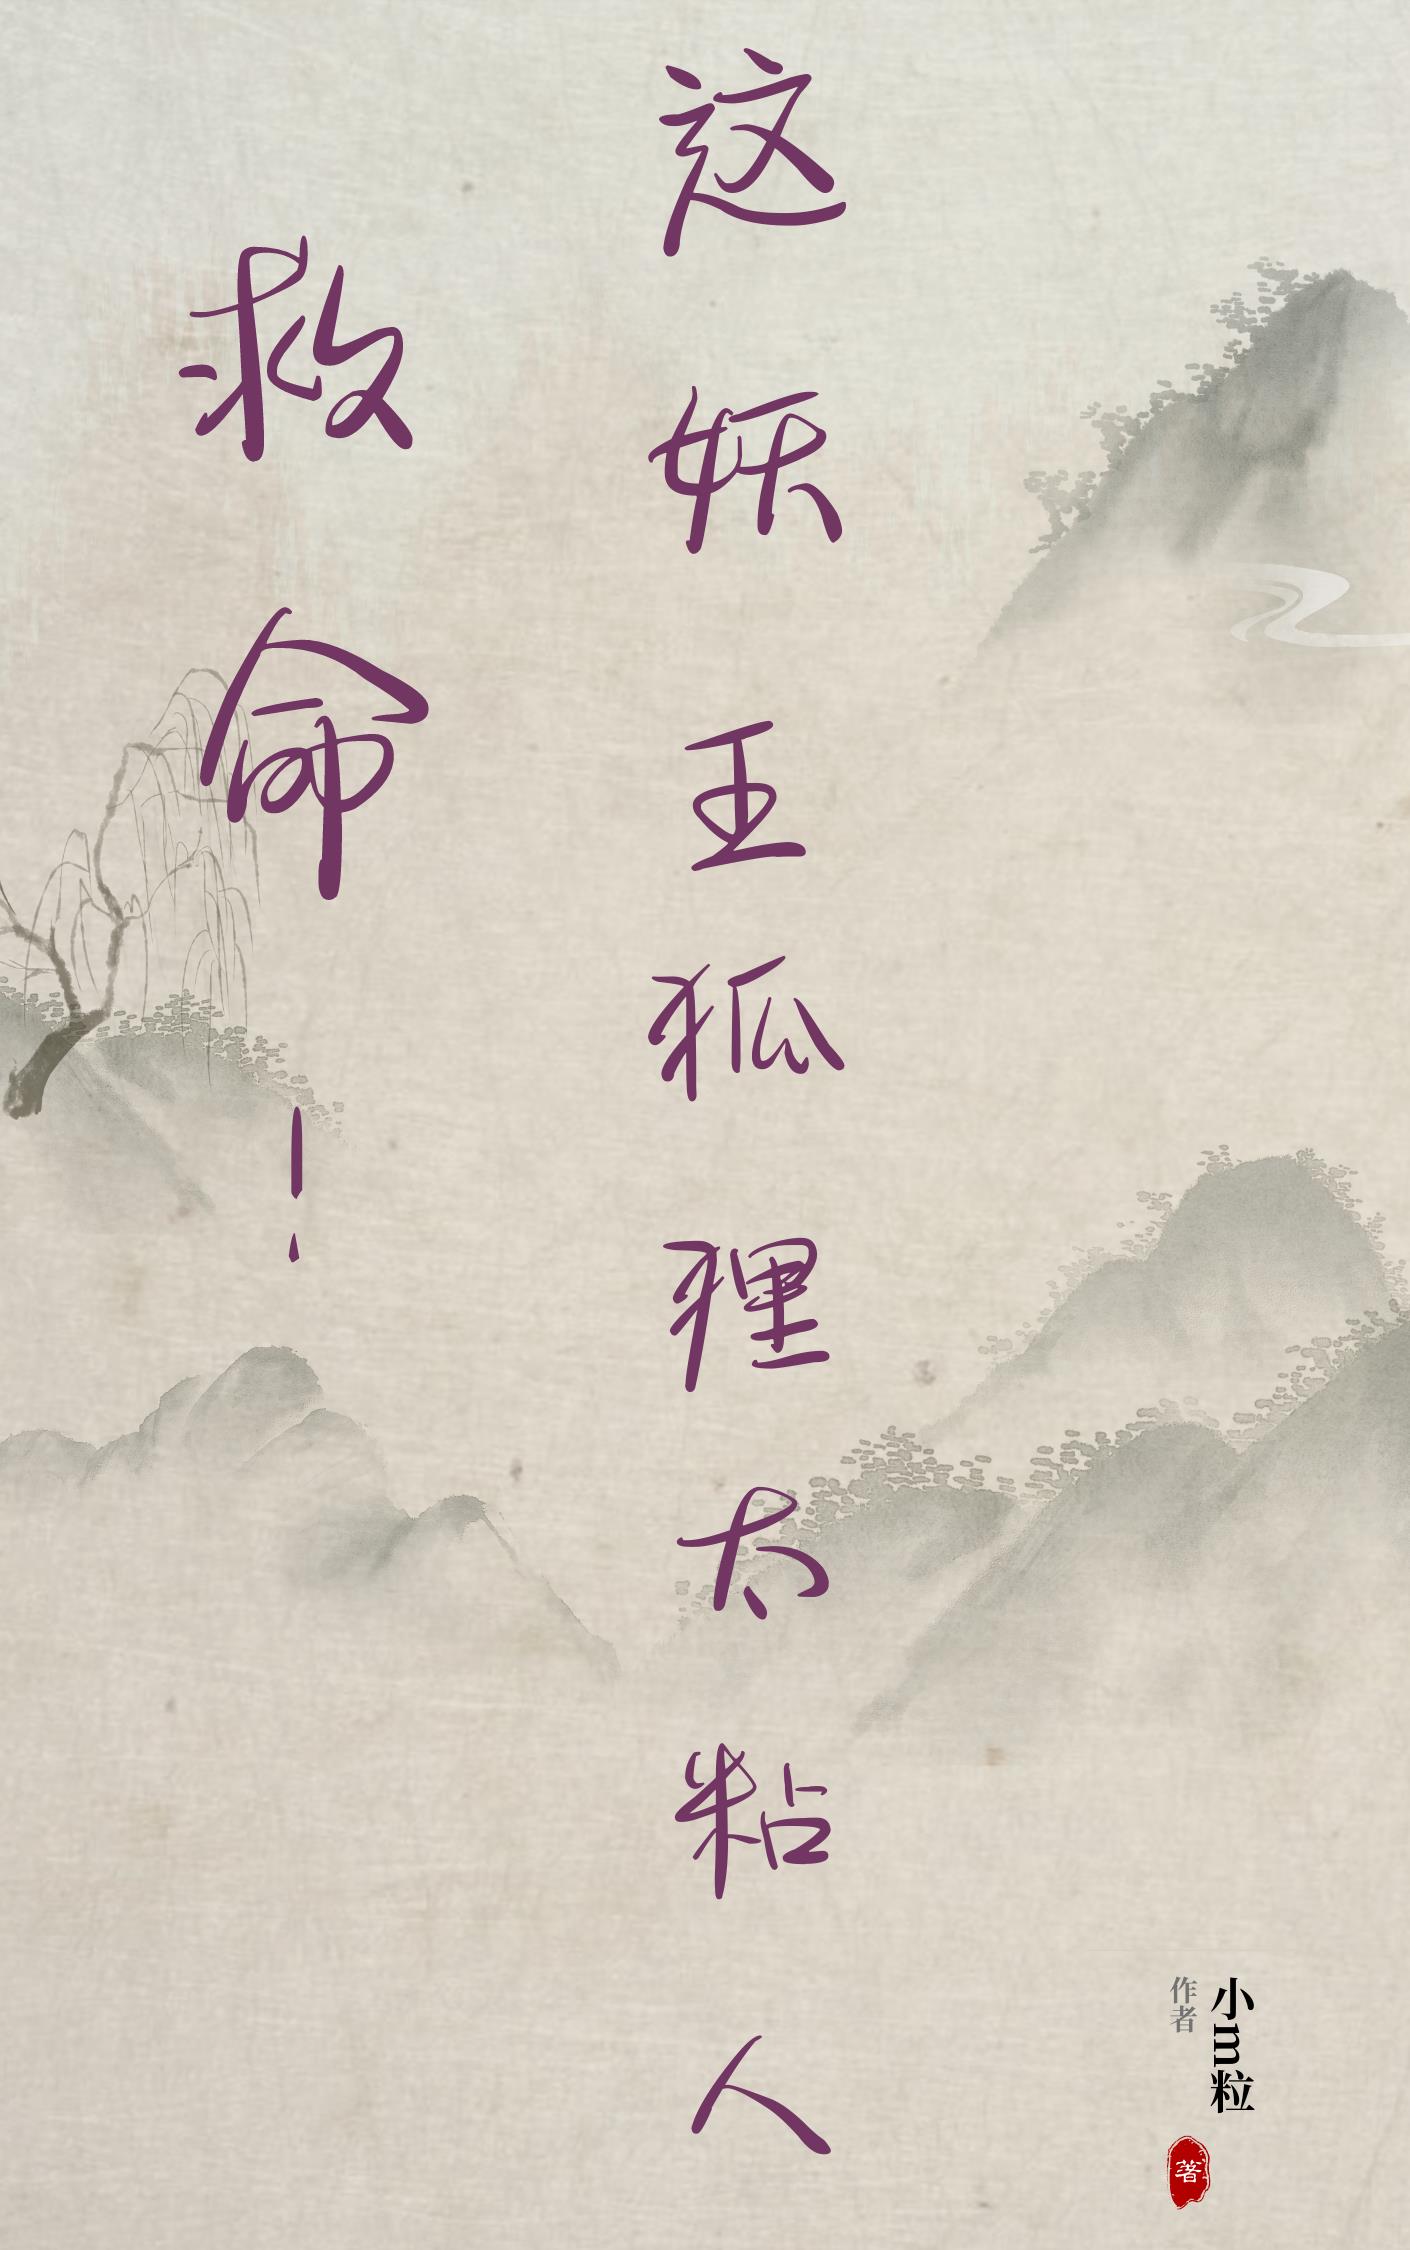 这妖王狐狸太粘人
救命！
小m粒
作者
著